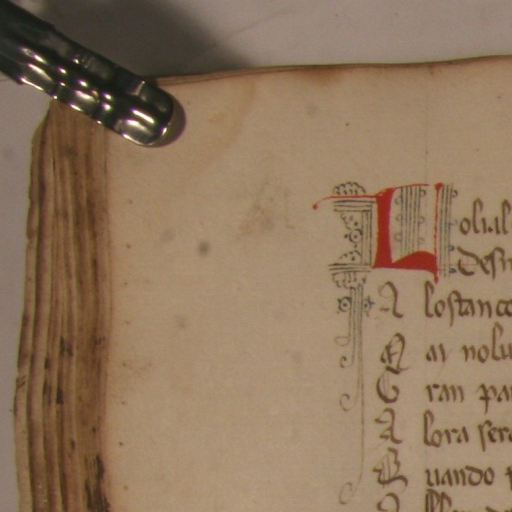 Loli al
Desi
A lostanco
M ai nolu
G ran pa
A lora ser
Q uando